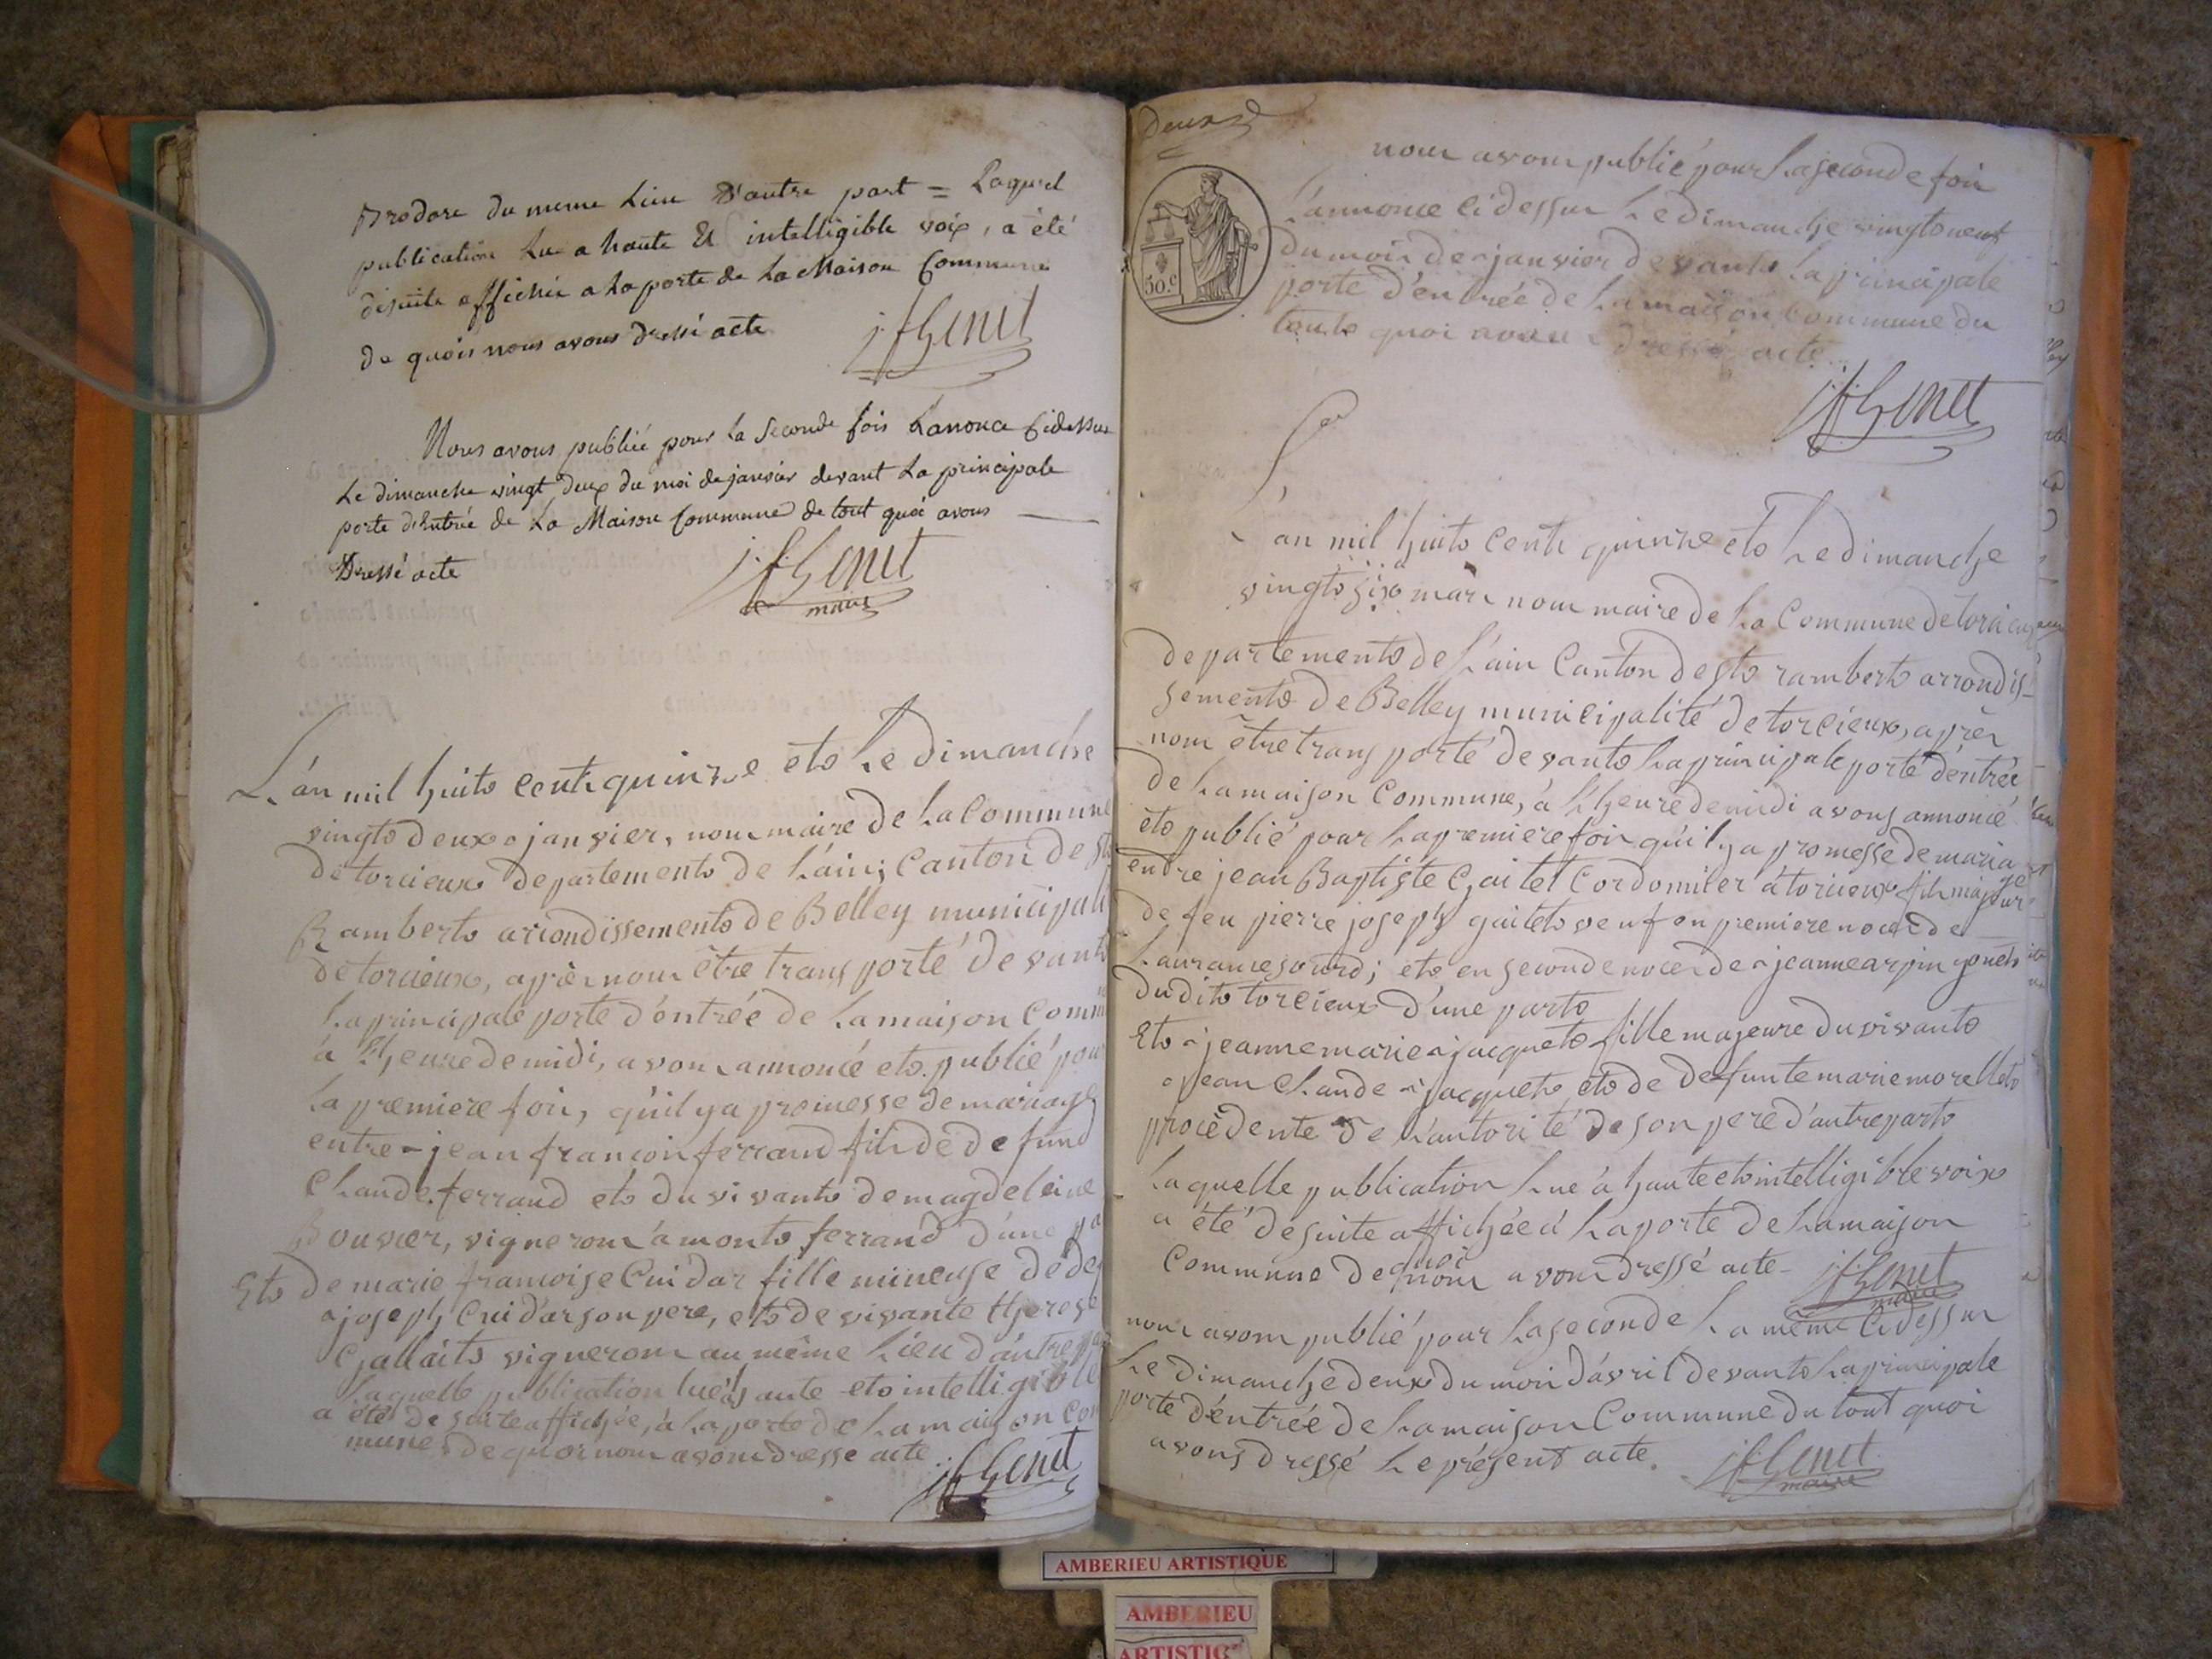 prodore du meme Lieu D'autre part = Laquel
publication Lue a haute Et intelligible voix, a été
desuite affichée a La porte de La Maison Commune
de quoi nous avons dressé acte
jfGenet
Nous avons publié pour La Seconde fois Lanonce Cidessus
Le dimanche vingt deux du moi de janvier devant La principale
porte d'Entrée de La Maison Commune de tout quoi avons
Dressé acte
jfGenet
maire
L'án mil huits cents quinze ets Le dimanche
vingts deux janvier, nous maire de La Commune
de torcieux departements de L'ain; Canton de St
Ramberts arrondissements de Belley municipali
de torcieux, après nous être transporté devant
La principale porte d'éntrée de La maison Comm
à L'heure de midi, avons annoncé ets publié pour
La premiere fois, qu'il y a promesse de mariage
entre jean françois ferrand fils de defund
Claude ferrand ets du vivants de magdeleine
Bouvier, vignerons à monts ferrand d'une pa
Ets de marie françoise Cuidar fille mineuse de def
joseph Cuidar son pere, ets de vivante therese
Gallaits vignerons au même Lieu d'autre par
Laquelle publication lue à haute ets intelligible
a été de suite affichée, à La porte de La maison Com
mune, de quoi nous avons dressé acte
jfGenet
Deuxe
50.c
nous avons publié pour La seconde fois
L'annonce cidessus Le dimanche vingts neuf
du mois de janvier devants La principale
porte d'entrée de La maison Commune du
touts quoi avons dressé acte
jfGenet
L'án mil huits cents quinze ets Le dimanche
vingts six mars nous maire de La Commune de torcieux
departements de L'ain Canton de sts ramberts arrondis-
sements de Belley municipalité de torcieux, après
nous être transporté devants La principale porte d'éntrée
de La maison Commune, à L'heure de midi avons annoncé
ets publié pour La premiere fois qu'il y a promesse de mariage
entre jean Baptiste Gaitet Cordonnier à torcieux fils majeur
de feu pierre joseph gaitets veuf en premiere noces de
Laurance sourd; ets en seconde noces de jeanne arpin gonets
du dits torcieux d'une parts
Ets jeanne marie jacquets fille majeure du vivants
jean Claude jacquets ets de defunte marie morellets
procèdente de L'autorité de son pere d'autre parts
Laquelle publication Lue à haute ets intelligible voix
a été de suite affichée à La porte de La maison
Commune de quoi nous avons dressé acte-
jfGenet
maire
nous avons publié pour La seconde La même Cidessus
Le dimanche deux du mois d'ávril devants La principale
porte d'éntrée de La maison Commune du tout quoi
avons dressé Le présent acte.
jfGenet
maire
AMBERIEU ARTISTIQUE
AMBERIEU
ARTISTIQ